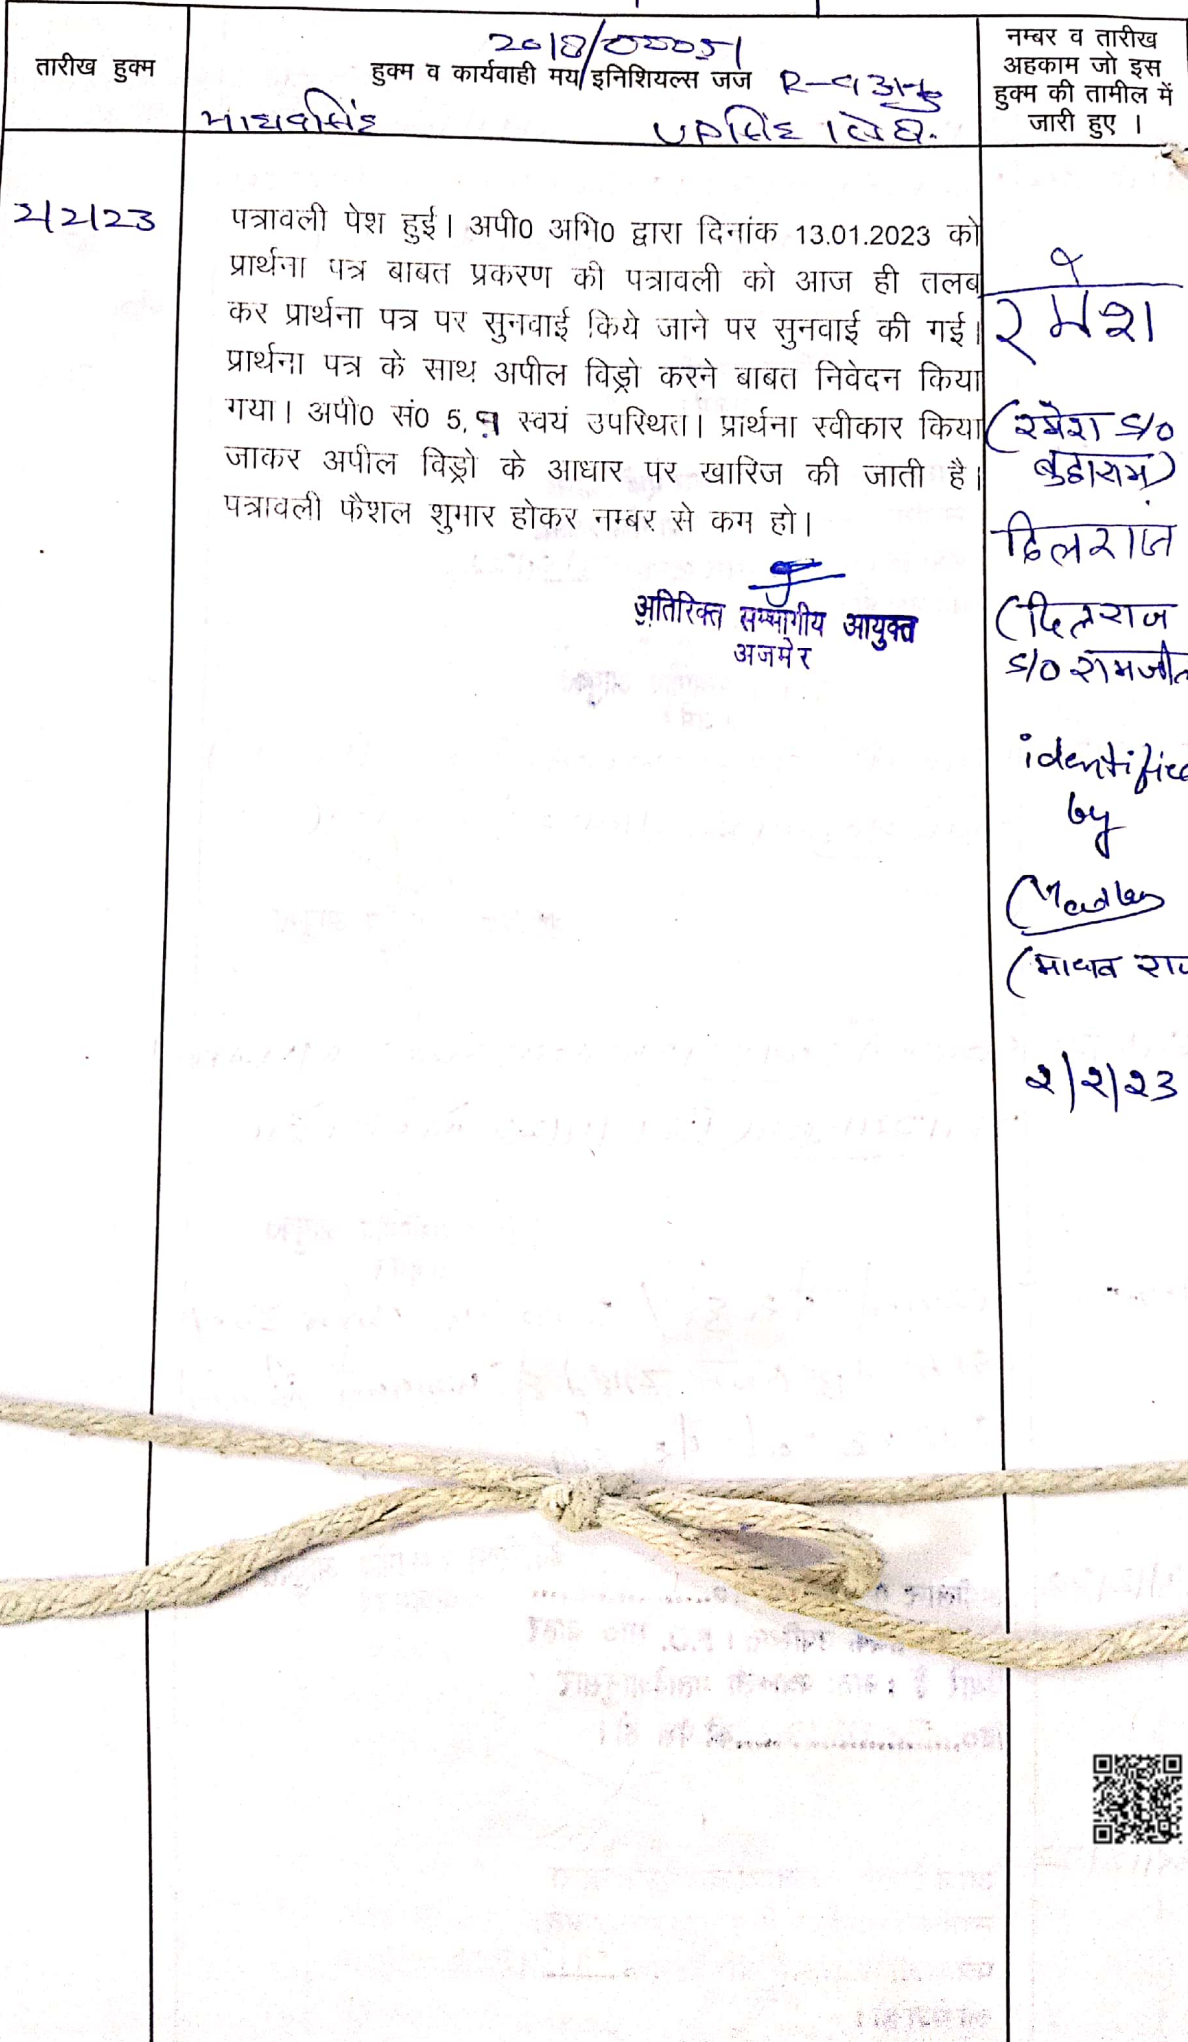 तारीख हुक्म
2018/00051
हुक्म व कार्यवाही मय इनिशियल्स जज
नम्बर व तारीख
अहकाम जो इस
हुक्म की तामील में
जारी हुए ।
माधवसिंह
2/2/23
पत्रावली पेश हुई। अपी0 अभि0 द्वारा दिनांक 13.01.2023 को
प्रार्थना पत्र बाबत प्रकरण की पत्रावली को आज ही तलब
कर प्रार्थना पत्र पर सुनवाई किये जाने पर सुनवाई की गई।
प्रार्थना पत्र के साथ अपील विड्रो करने बाबत निवेदन किया
गया। अपी0 सं0 5, स्वयं उपस्थित। प्रार्थना स्वीकार किया
जाकर अपील विड्रो के आधार पर खारिज की जाती है।
पत्रावली फैशल शुमार होकर नम्बर से कम हो।
अतिरिक्त सम्भागीय आयुक्त
अजमेर
रमेश
(रमेश S/O
बुद्धाराम)
दिलराज
(दिलराज
S/O रामजी
identified
by
(माधव
2/2/23